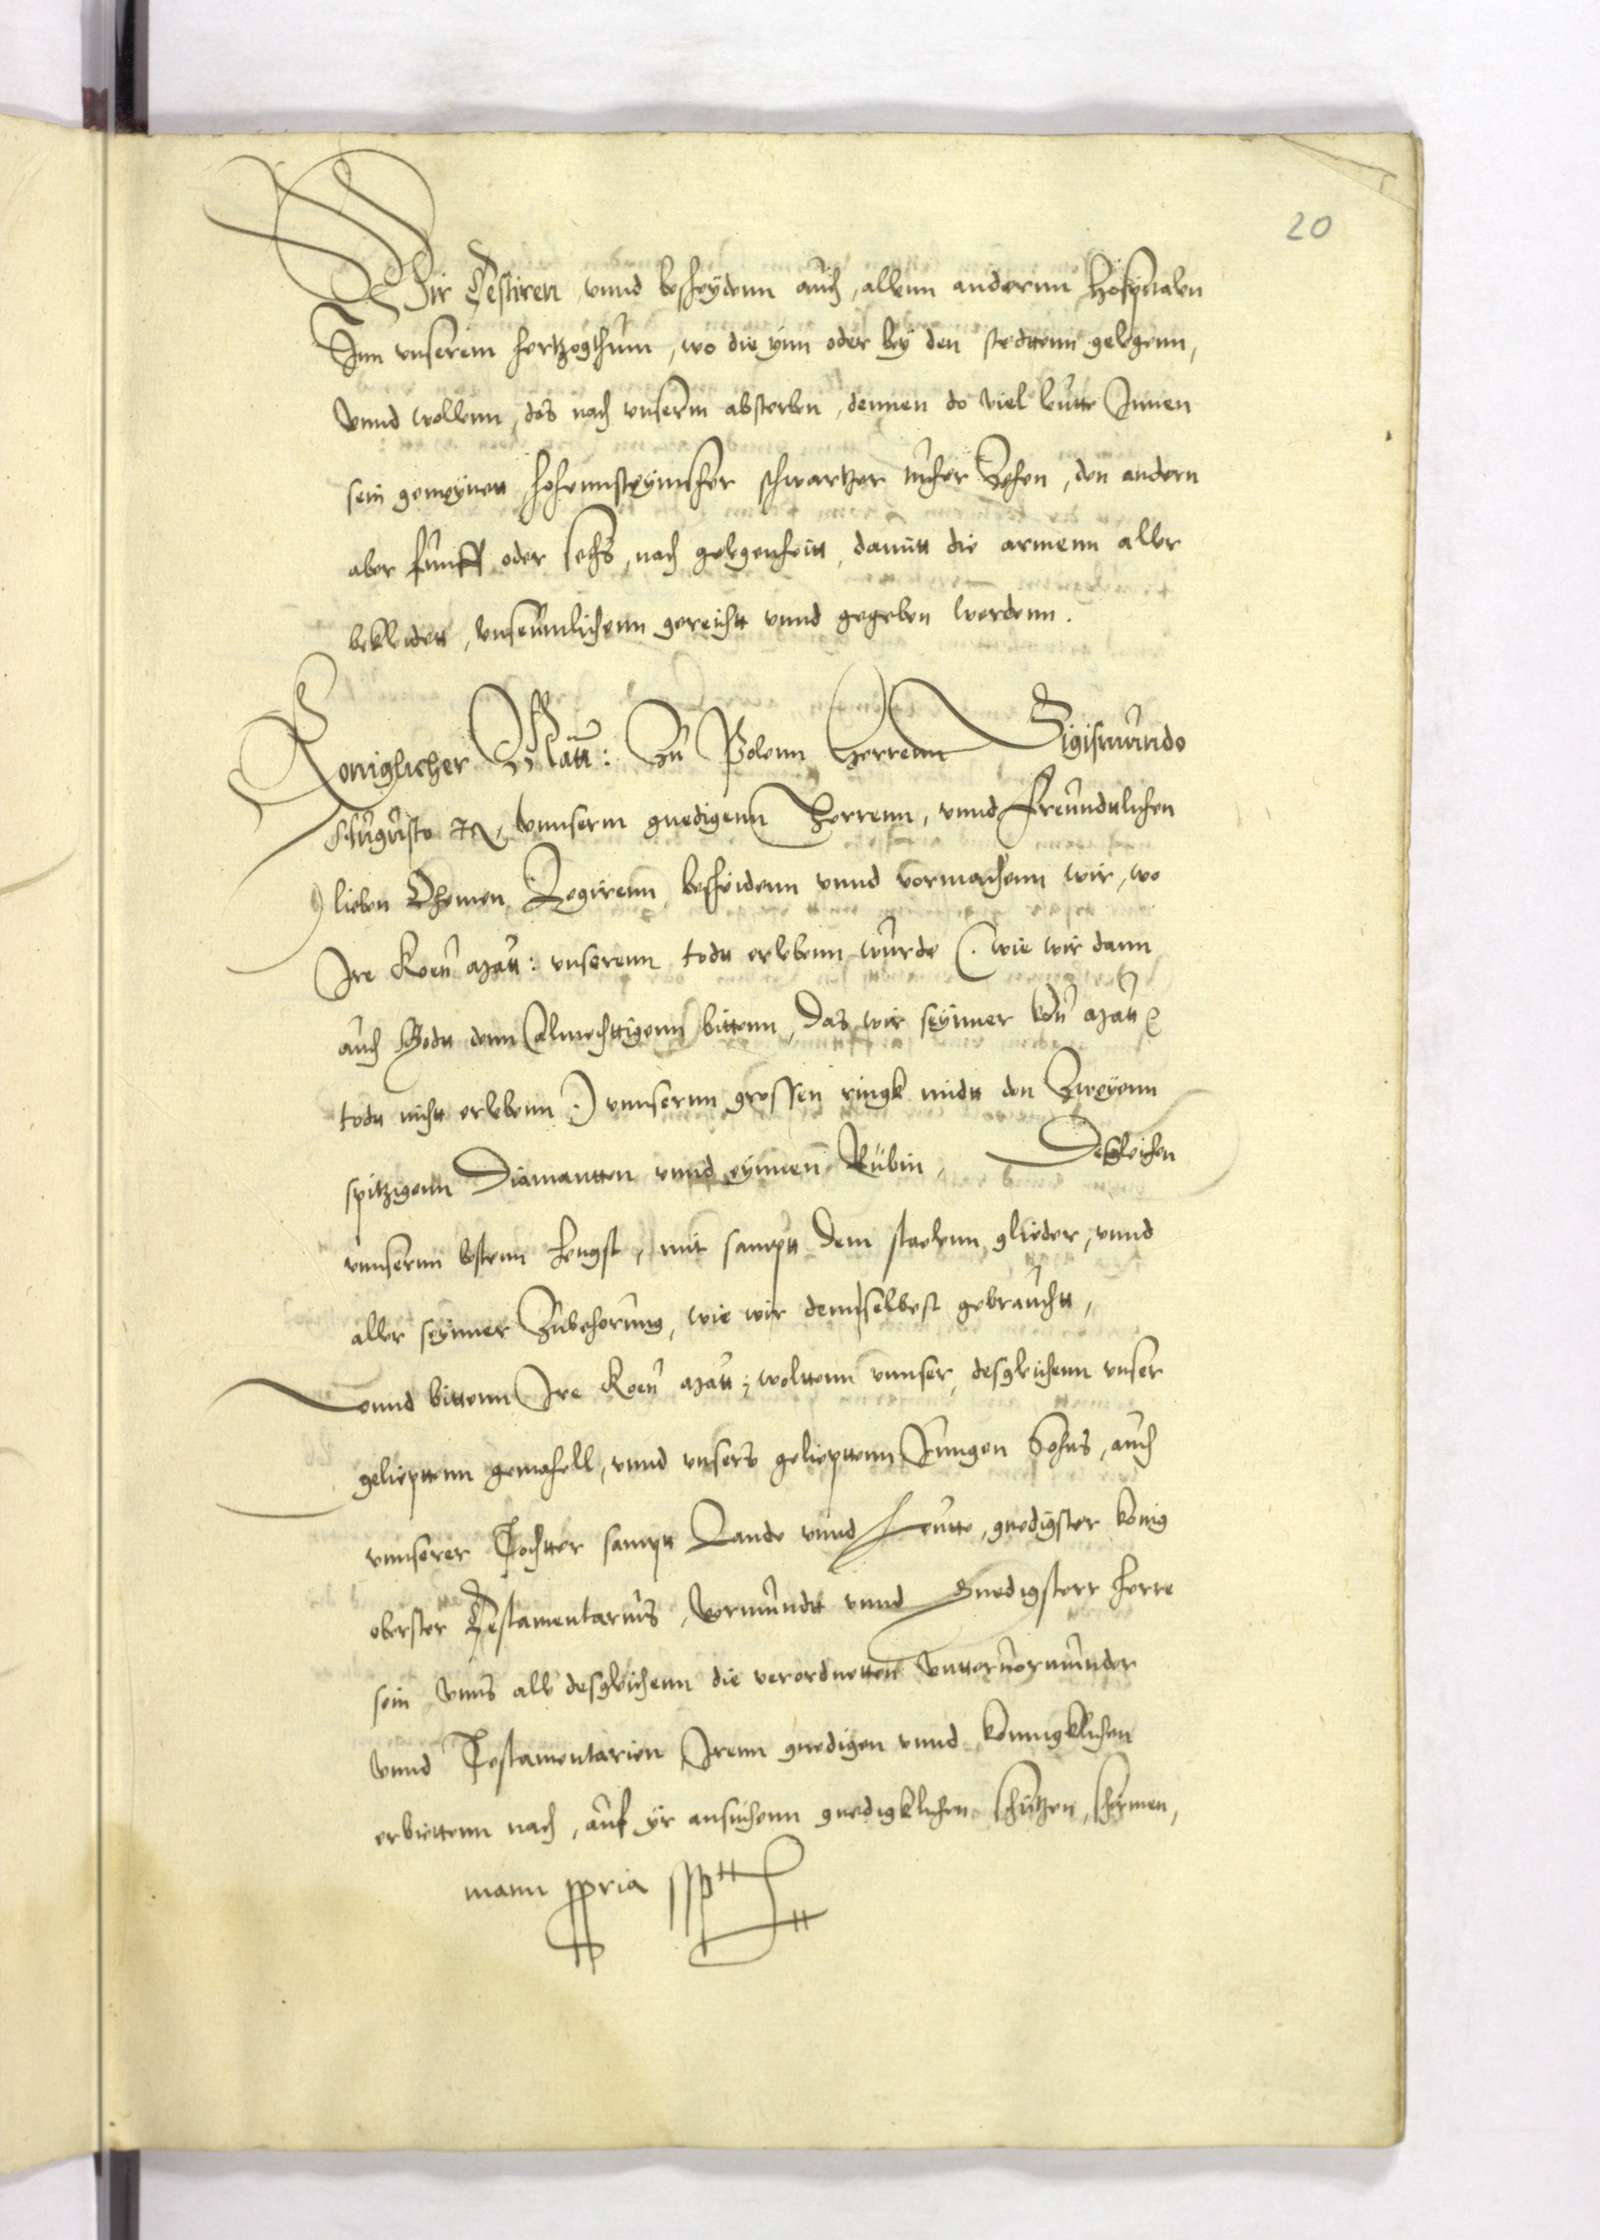 20
Wir Testiren vnnd bescheydenn auch, allenn anderenn Hospitalen
Inn vnserem hertzogthum, wo die ynn oder bey den stedttenn gelegenn,
vnnd wollenn, das nach vnserm absterben, dennen do viel leutte Innen
sein gemeynen hohennsteynischer schwartzer tucher Zehen, den andern
aber funff oder sechs, nach gelegenheitt, damitt die armenn aller
bekleidett, vnseumlichenn gereichtt vnnd gegeben werdenn.
Koniglicher Matt: Zu Polenn Herrenn Sigismundo
Augusto vnnserm gnedigenn Herrenn, vnnd freundtlichen
lieben Ohemen Legirenn, bescheidenn vnnd vormachenn wir, wo
Ire Koen Matt: vnserenn todtt erlebenn wurde (. wie wir dann
auch Godtt denn almechttigenn bittenn, das wir seynner kon Matt
todtt nicht erlebenn .) vnnserenn grossen ringk midtt den Zweyenn
spitzigenn Diamantten vnnd eynnen Rubin. Desgleichen
vnnserenn bestenn hengst, mit sampt dem staelenn glieder, vnnd
aller seynner Zubehorung, wie wir denn selbest gebrauchtt,
vnnd bittenn Ire Koen Matt: wolttenn vnnser, desgleichenn vnser
geliepttenn gemahell, vnnd vnsers geliepttenn Jungen Sohns, auch
vnnserer Tochtter sampt Lande vnnd Leutte, gnedigster konig
oberster Testamentarius, Vormundtt vnnd Gnedigsterr herre
sein vnns alle desgleichenn die verordnetten vnttervormunder
vnnd Testamentarien Irenn gnedigen vnnd konnigklichen
erbiettenn nach, auf yr ansuchenn gnedigklichen schutzen, schirmen,
manu ppria sspt